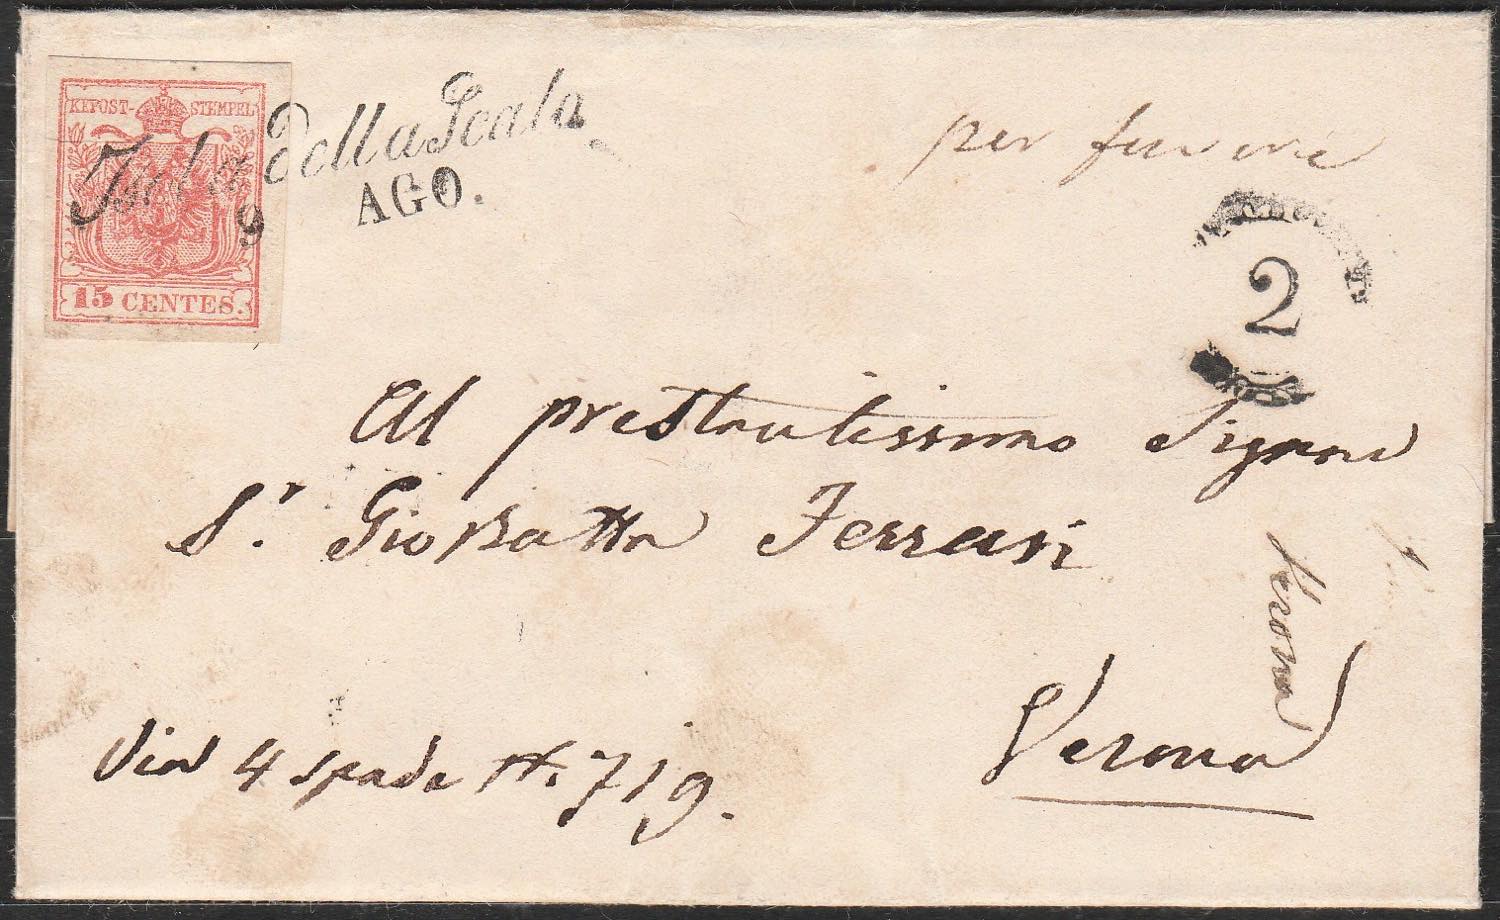 KKPOST-STEMPEL
15 CENTES.
Isola Della Scala
9 AGO.
per
2
Al prestantissimo Signore
S.r Gio Batta Ferrari
Verona
Verona
Via 4 spade N. 719.